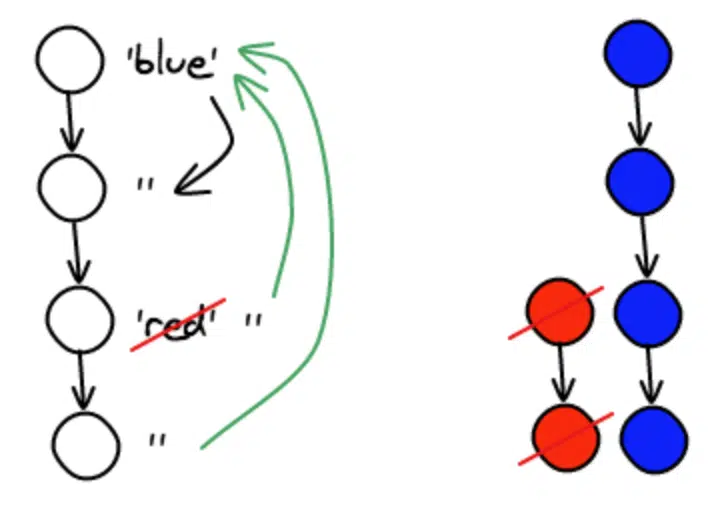 'blue'
"
'red' "
"